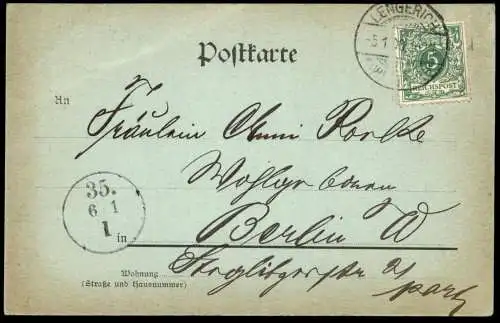 LENGERICH
5 1
5
REICHSPOST
Postkarte
An
Fräulein Anni
Wohlgeboren
35.
6 1
1
in Berlin W
Wohnung
(Straße und Hausnummer)
Steglitzerstr
part.